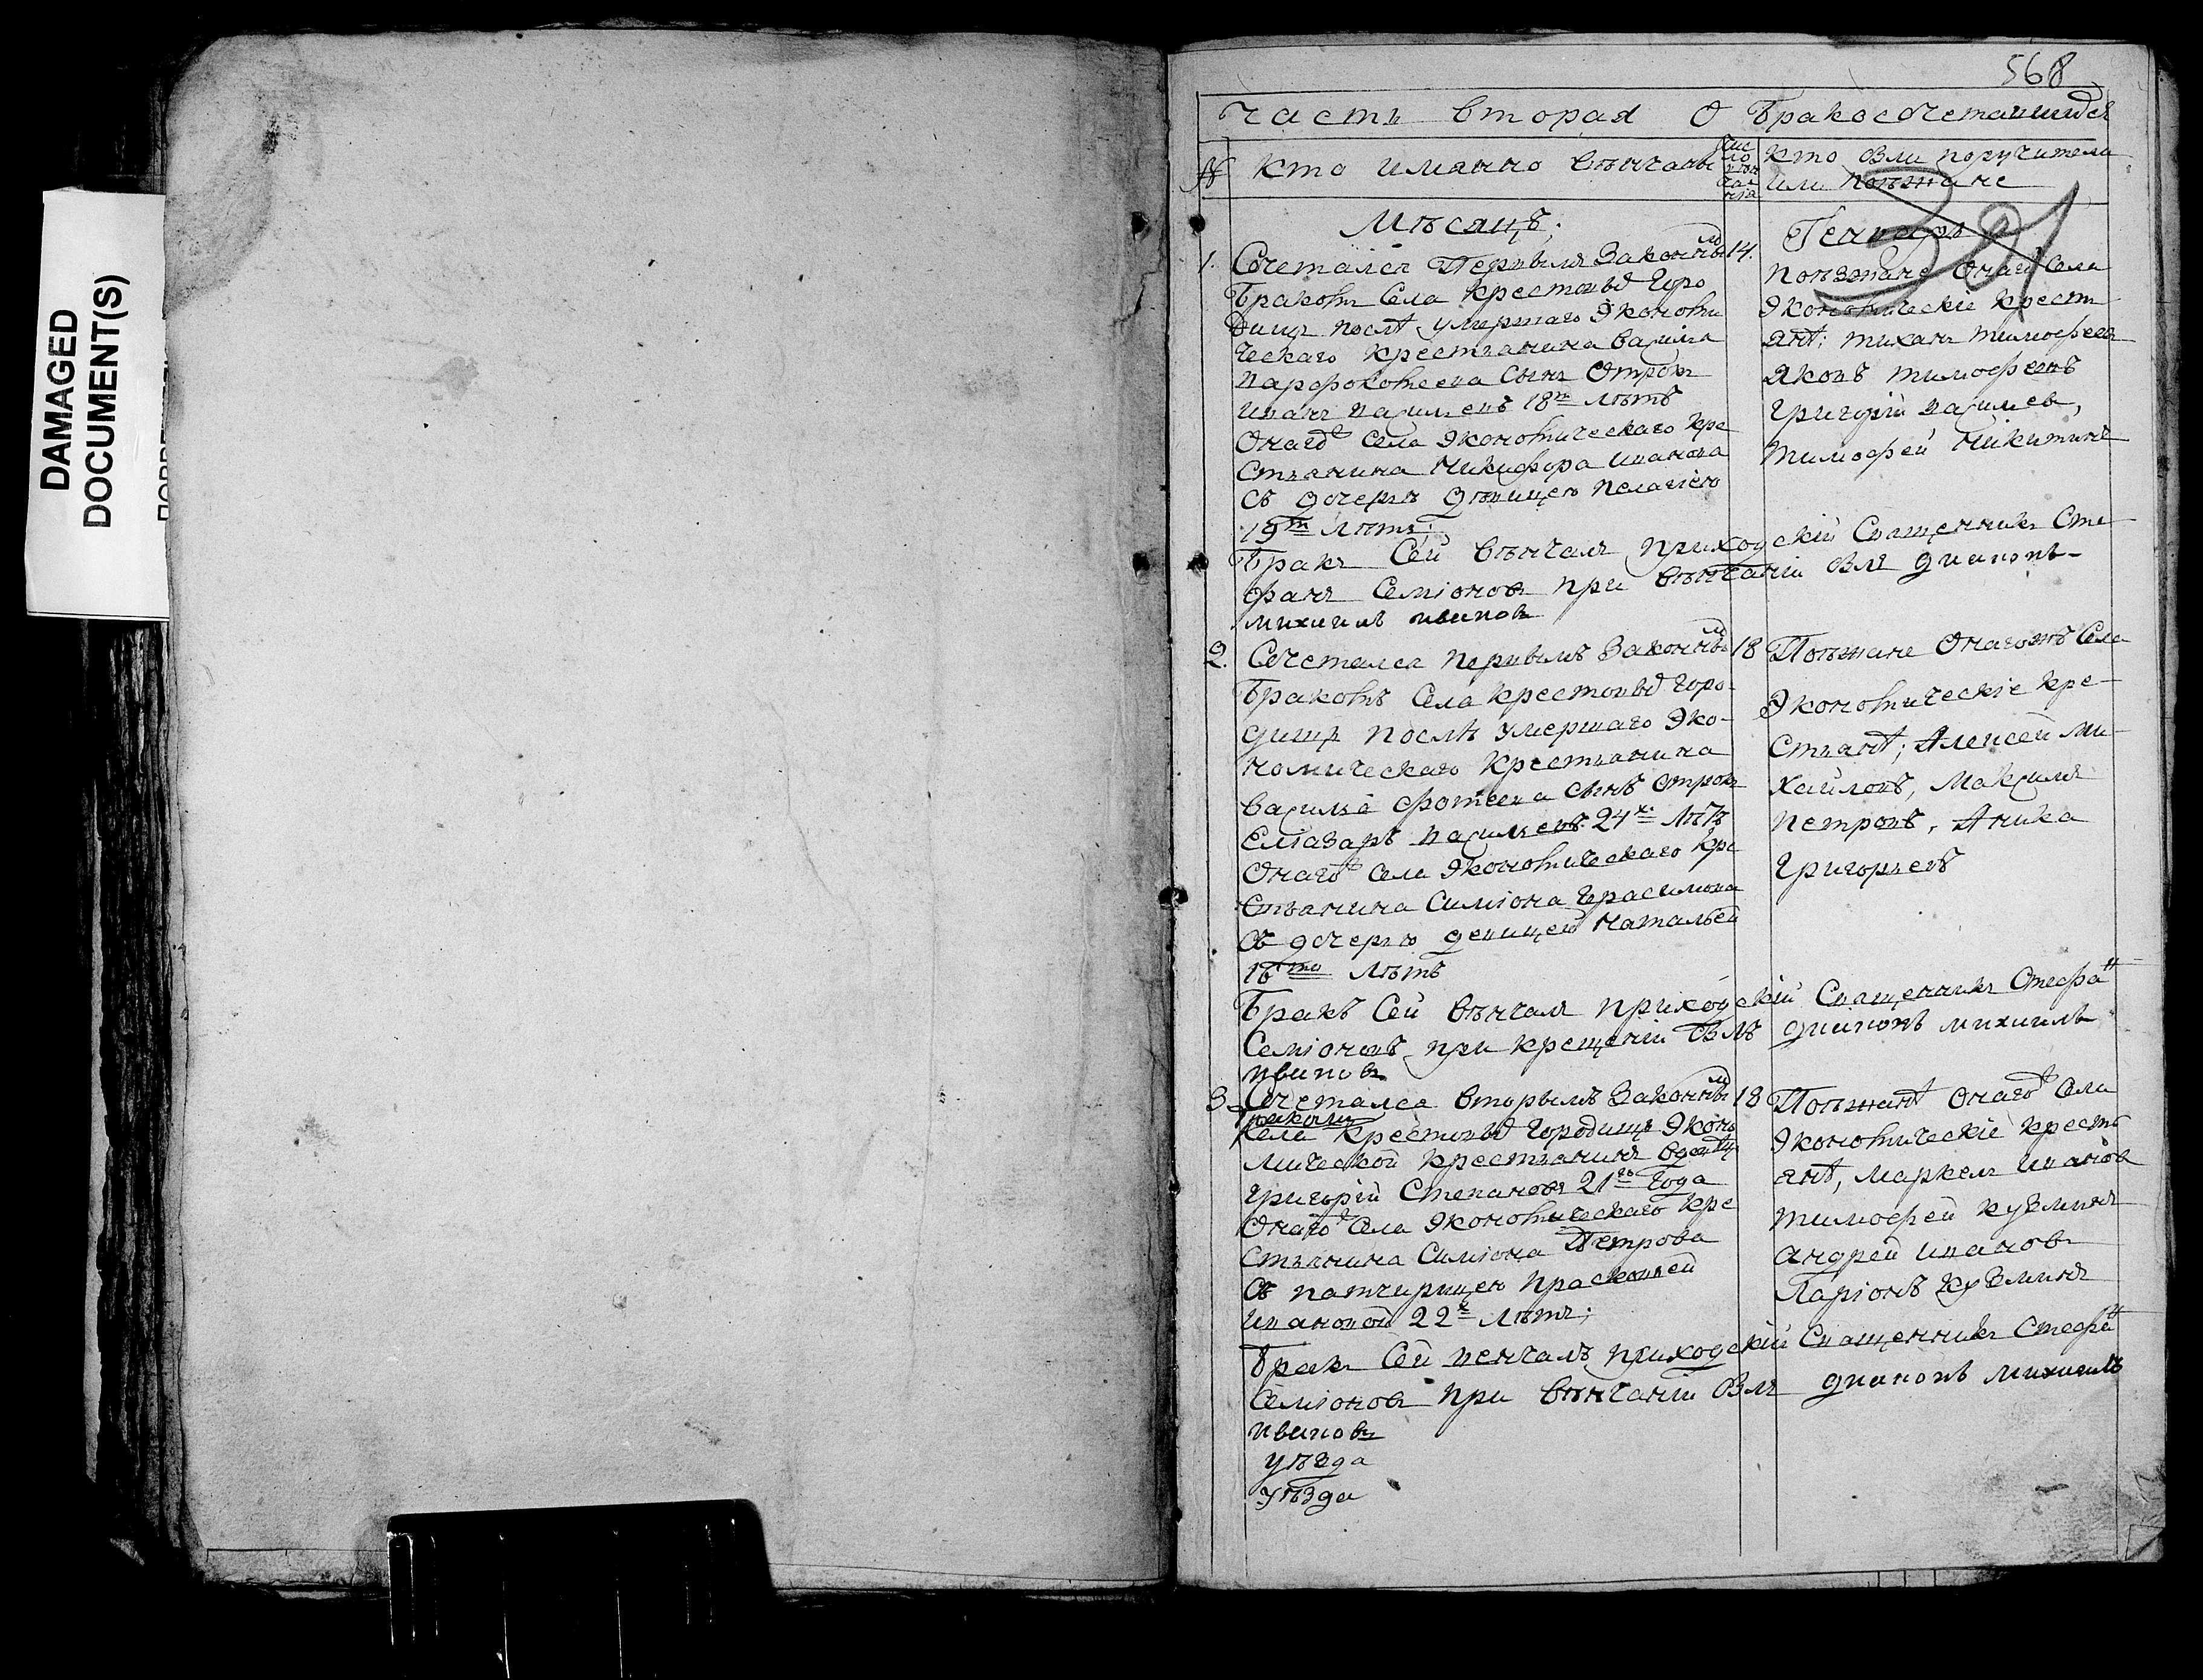 DAMAGED
DOCUMENT(S)
568
часть вторая О бракосочетавшихся
№ кто имянно венчаны
Число венчания
кто были поручители
или поезжане
391
Месяцъ; Генварь
1. Сочетался Первымъ Законнымъ 14.
бракомъ Села Крестовыхъ Горо
дищъ послѣ умершаго Экономи
ческаго крестьянина Василья
Сынъ Отрокъ
Иванъ Васильевъ 18ти лѣтъ
Онаго Села Экономическаго кре
стьянина Никифора Иванова
Съ дочерью дѣвицею Пелагіею
19ти лѣтъ;
Поезжане Онаго Села
Экономическіе крестъ
янѣ: Тиханъ Тимофеевъ
Яковъ Тимофеевъ
Григорій Васильевъ,
Тимофей Никитинъ
Бракъ Сей Венчалъ приходскій Священникъ Сте
фанъ Семіоновъ при венчаніи Былъ Дияконъ
Михаилъ Ивановъ
2. Сочетался первымъ Законнымъ 18
бракомъ Села Крестовыхъ Горо-
дищъ послѣ умершаго Эко-
номическаго крестьянина
Василья Фотеева сынъ Отрокъ
Еліазаръ Васильевъ 24хъ лѣтъ
Онаго Села Экономическаго кре
стьянина Симіона Герасимова
Съ дочерью девицей Натальей
16ти лѣтъ
Поѣзжане Онагожъ Села
Экономическіе кре-
стьянѣ; Алексей Ми-
хайловъ, Максимъ
Петровъ, Аника
Григорьевъ
Бракъ Сей венчалъ приходскій Священникъ Стефанъ
Семіоновъ при крещеніи Былъ Дияконъ Михаилъ
Ивановъ
3. Сочетался вторымъ Законнымъ 18
бракомъ
Села Крестовыхъ Городищъ Эконо
мической крестьянинъ вдовецъ
Григорій Степановъ 21го Года
Онаго Села Экономическаго кре
стьянина Симіона Петрова
Съ патчерицею Прасковьей
Ивановой 22хъ лѣтъ;
Поѣзжанѣ Онаго Села
Экономическіе кресть
янѣ, Маркелъ Ивановъ
Тимофей Кузминъ
Андрей Ивановъ
Ларіонъ Кузминъ
Бракъ Сей венчалъ приходскій Священникъ Стефанъ
Семіоновъ при венчаніи Былъ Дияконъ Михаилъ
Ивановъ
уѣзда
уѣзда